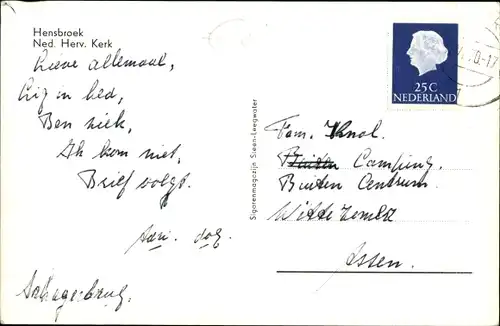 Hensbroek
Ned. Herv. Kerk
Lieve allemaal,
Lig in bed,
Ben ziek,
Ik kom niet,
Brief volgt.
Schagerbrug,
Sigarenmagazijn Steen-Leegwater
25 C
NEDERLAND
Fam. Knol.
Buiten Camping.
Buiten Centrum.
Witterzomer
Assen.